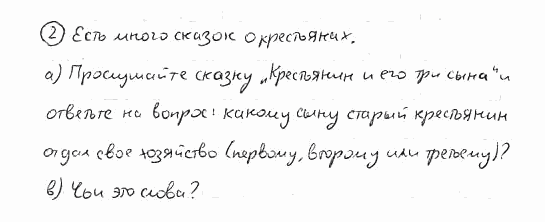 ② Есть много сказок о крестьянах.
а) Прослушайте сказку „Крестьянин и его три сына" и
ответьте на вопрос: какому сыну старый крестьянин
отдал свое хозяйство (первому, второму или третьему)?
в) Чьи это слова?